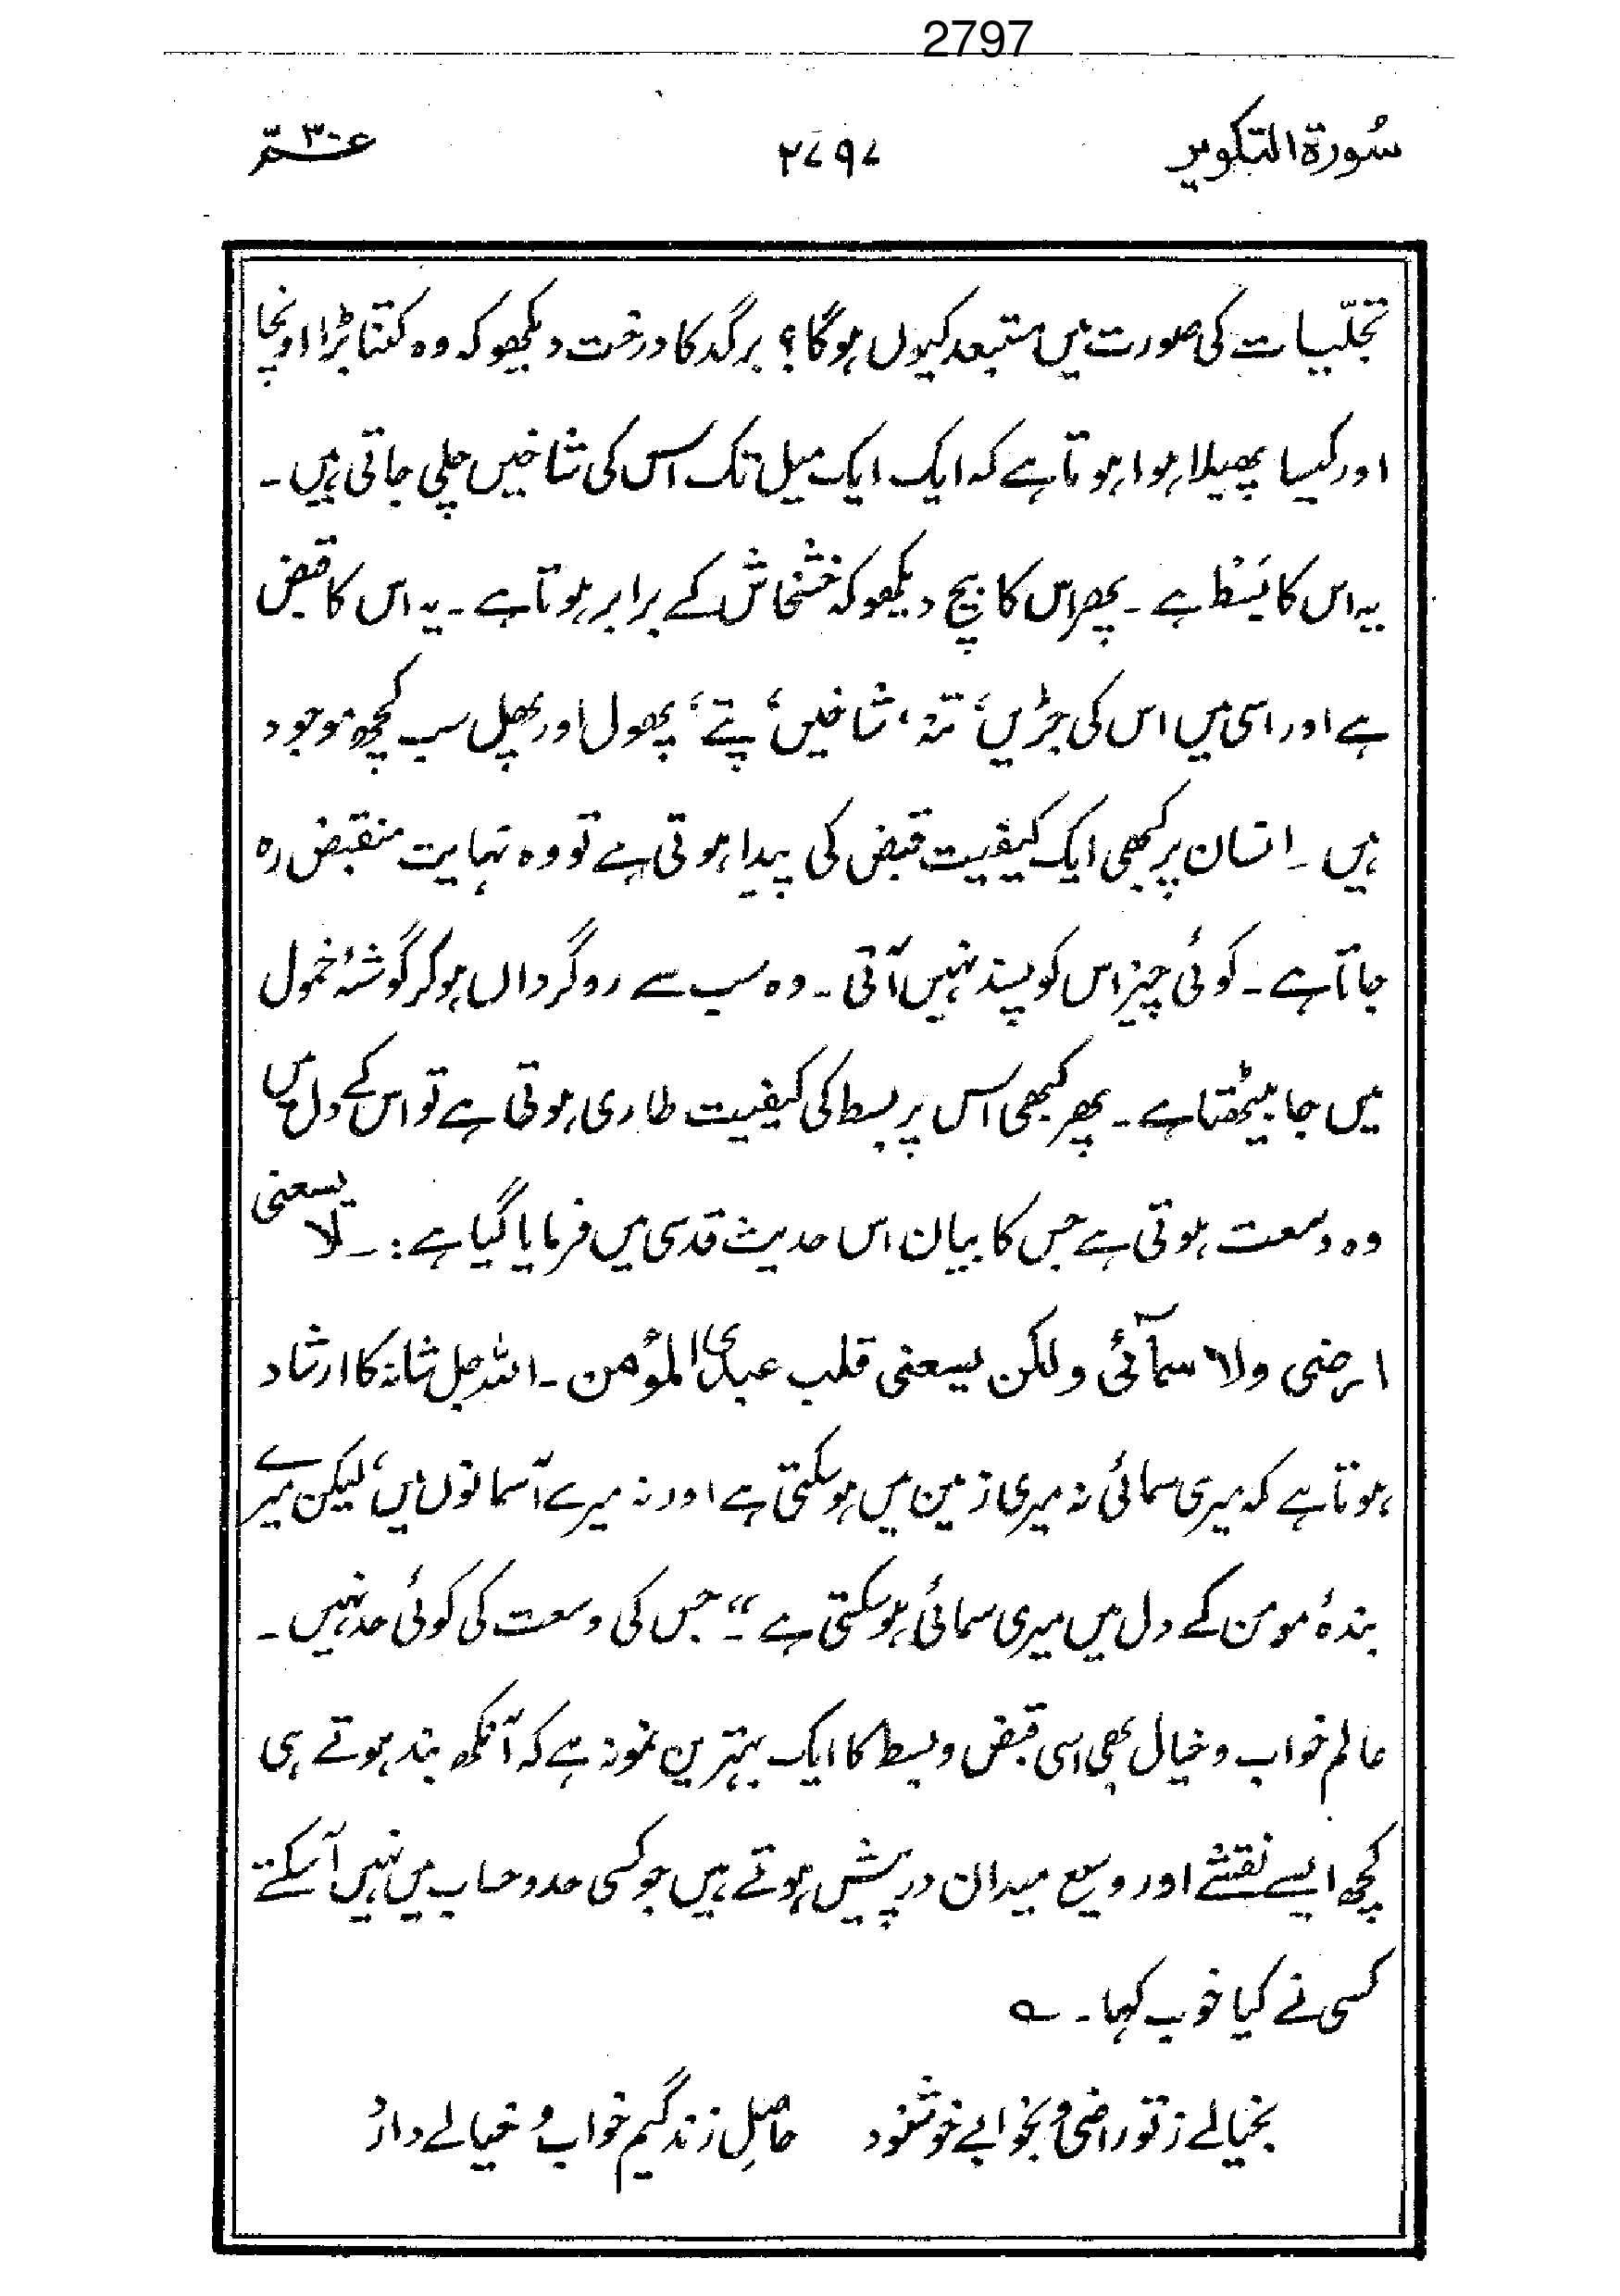 2797
سُورۃ التکویر ۲۷۹۷ عمّ ۳۰
تجلّیات کی صورت میں مستبعد کیوں ہوگا؟ برگد کا درخت دیکھو کہ وہ کتنا بڑا اونچا
اور کیسا پھیلا ہوا ہوتا ہے کہ ایک ایک میل تک اس کی شاخیں چلی جاتی ہیں۔
یہ اس کا بَسْط ہے۔ پھر اس کا بیج دیکھو کہ خشخاش کے برابر ہوتا ہے۔ یہ اس کا قبض
ہے اور اسی میں اس کی جڑیں، تنہ، شاخیں، پتے، پھول اور پھل سب کچھ موجود
ہیں۔ انسان پر کبھی ایک کیفیت قبض کی پیدا ہوتی ہے تو وہ نہایت منقبض رہ
جاتا ہے۔ کوئی چیز اس کو پسند نہیں آتی۔ وہ سب سے روگرداں ہو کر گوشۂ خمول
میں جا بیٹھتا ہے۔ پھر کبھی اس پر بسط کی کیفیت طاری ہوتی ہے تو اس کے دل میں
وہ وسعت ہوتی ہے جس کا بیان اس حدیث قدسی میں فرمایا گیا ہے:۔ لا یسعنی
ارضی ولا سمآئی ولکن یسعنی قلب عبدی المؤمن۔ اللہ جل شانہ کا ارشاد
ہوتا ہے کہ میری سمائی نہ میری زمین میں ہو سکتی ہے اور نہ میرے آسمانوں میں، لیکن میرے
بندۂ مومن کے دل میں میری سمائی ہو سکتی ہے“۔ جس کی وسعت کی کوئی حد نہیں۔
عالم خواب و خیال بھی اسی قبض و بسط کا ایک بہترین نمونہ ہے کہ آنکھ بند ہوتے ہی
کچھ ایسے نقشے اور وسیع میدان درپیش ہوتے ہیں جو کسی حد و حساب میں نہیں آسکتے
کسی نے کیا خوب کہا۔ ؎
بخیالے ز تو راضی و بخوابے خوشنود حاصلِ زندگیم خواب و خیالے دارد